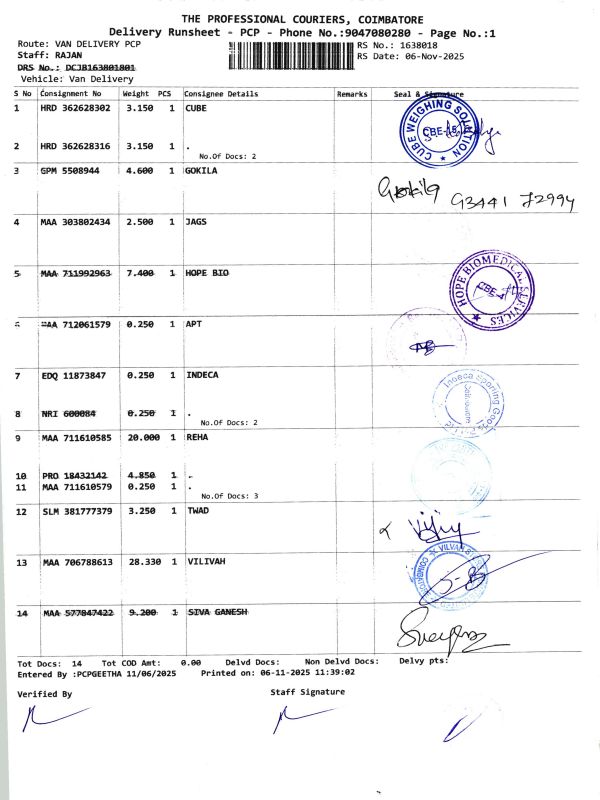 THE PROFESSIONAL COURIERS, COIMBATORE
Delivery Runsheet - PCP - Phone No.:9047080280 - Page No.:1
Route: VAN DELIVERY PCP
RS No.: 1638018
Staff: RAJAN
RS Date: 06-Nov-2025
DRS No.: DCJB163801801
Vehicle: Van Delivery
S No Consignment No Weight PCS Consignee Details Remarks Seal & Signature
1 HRD 362628302 3.150 1 CUBE
CUBE WEIGHING SOLUTION
2 HRD 362628316 3.150 1 .
No.Of Docs: 2
3 GPM 5508944 4.600 1 GOKILA
Gokila 93441 72994
4 MAA 303802434 2.500 1 JAGS
5 MAA 711992963 7.400 1 HOPE BIO
HOPE BIOMEDICAL SERVICES
CBE-4
MAA 712061579 0.250 1 APT
7 EDQ 11873847 0.250 1 INDECA
Indeca Sporting Goods
Coimbatore
8 NRI 600084 0.250 1 .
No.Of Docs: 2
9 MAA 711610585 20.000 1 REHA
10 PRO 18432142 4.850 1 .
11 MAA 711610579 0.250 1 .
No.Of Docs: 3
12 SLM 381777379 3.250 1 TWAD
13 MAA 706788613 28.330 1 VILIVAH
14 MAA 577847422 9.200 1 SIVA GANESH
Tot Docs: 14 Tot COD Amt: 0.00 Delvd Docs: Non Delvd Docs: Delvy pts:
Entered By :PCPGEETHA 11/06/2025 Printed on: 06-11-2025 11:39:02
Verified By
Staff Signature